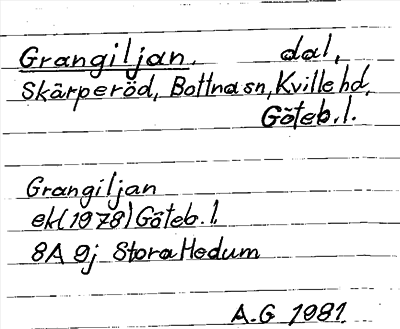 Grangiljan. dal,
Skärperöd, Bottna sn, Kville hd,
Göteb. l.
Grangiljan
ek (1978) Göteb. l.
8A 9j Stora Hedum
A.G 1981